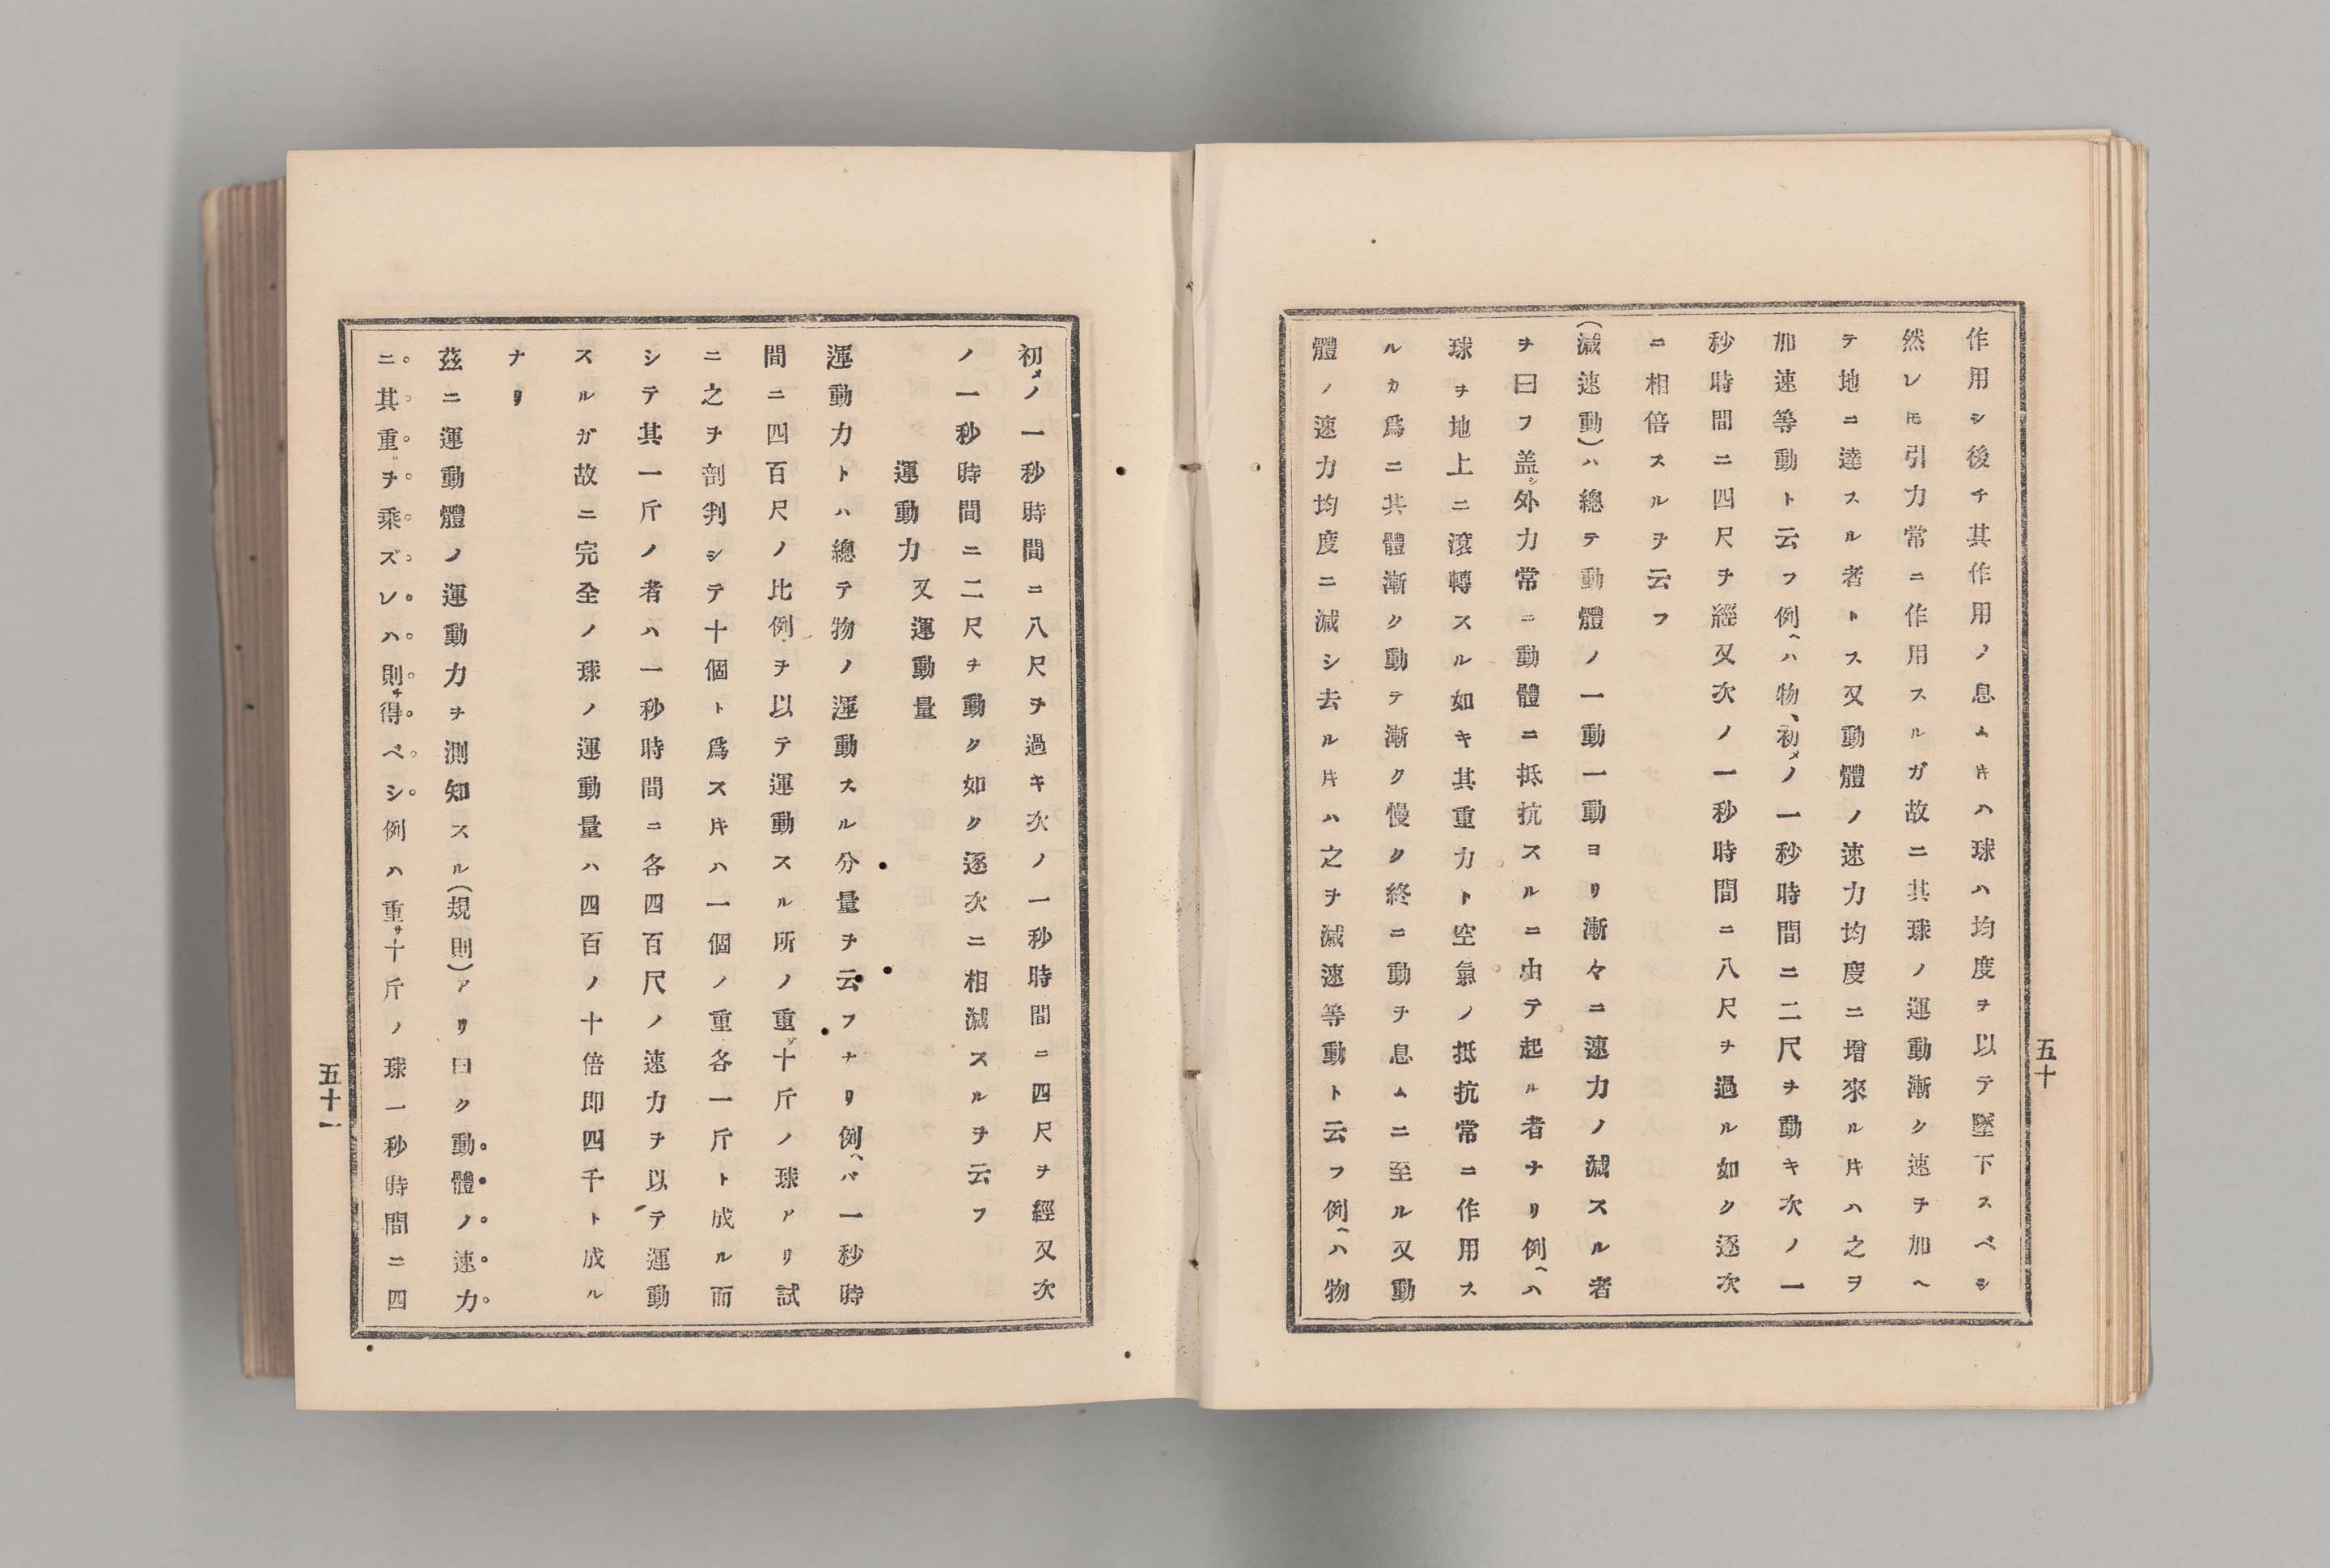 作用シ後チ其作用ノ息ム𪜈ハ球ハ均度ヲ以テ墜下スベシ
然レ𪜈引力常ニ作用スルガ故ニ其球ノ運動漸ク速チ加ヘ
テ地ニ達スル者トス又動體ノ速力均度ニ增來ル𪜈ハ之ヲ
加速等動ト云フ例ヘハ物、初メノ一秒時間ニ二尺ヲ動キ次ノ一
秒時間ニ四尺チ經又次ノ一秒時間ニ八尺チ過ル如ク逐次
ニ相倍スルヲ云フ
(減速動)ハ總テ動體ノ一動一動ヨリ漸々ニ速力ノ減スル者
ヲ曰フ盖シ外力常ニ動體ニ抵抗スルニ由テ起ル者ナリ例ヘハ
球ヲ地上ニ滾轉スル如キ其重力ト空氣ノ抵抗常ニ作用ス
ルカ爲ニ其體漸ク動テ漸ク慢ク終ニ動チ息ムニ至ル又動
體ノ速力均度ニ減シ去ル𪜈ハ之ヲ減速等動ト云フ例ヘハ物
五十
初メノ一秒時間ニ八尺ヲ過キ次ノ一秒時間ニ四尺ヲ經又次
ノ一秒時間ニ二尺チ動ク如ク逐次ニ相減スルヲ云フ
運動力 又運動量
運動力トハ總テ物ノ運動スル分量ヲ云フナリ例ヘバ一秒時
間ニ四百尺ノ比例ヲ以テ運動スル所ノ重サ十斤ノ球アリ試
ニ之ヲ剖判シテ十個ト爲ス𪜈ハ一個ノ重各一斤ト成ル而
シテ其一斤ノ者ハ一秒時間ニ各四百尺ノ速力ヲ以テ運動
スルガ故ニ完全ノ球ノ運動量ハ四百ノ十倍即四千ト成ル
ナリ
茲ニ運動體ノ運動力ヲ測知スル(規則)アリ曰ク動體ノ速力
ニ其重サチ乘ズレハ則チ得ベシ例ハ重サ十斤ノ球一秒時間ニ四
五十一